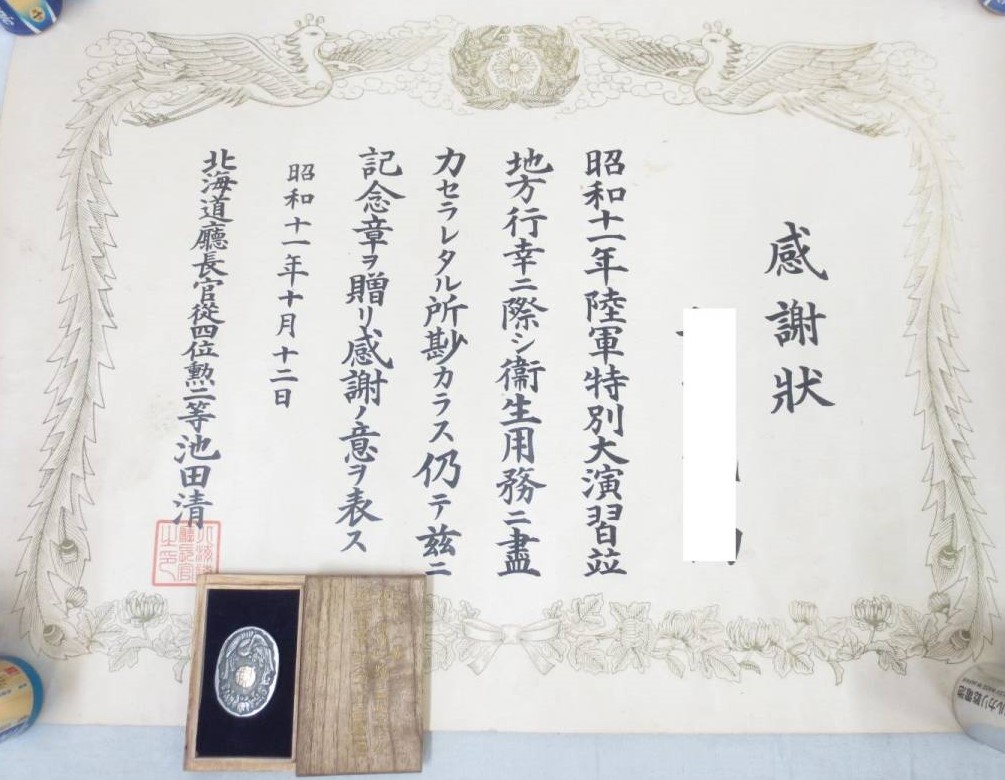 感謝狀
昭和十一年陸軍特別大演習竝
地方行幸ニ際シ衞生用務ニ盡
力セラレタル所尠カラス仍テ玆ニ
記念章ヲ贈リ感謝ノ意ヲ表ス
昭和十一年十月十二日
北海道廳長官從四位勲二等池田清